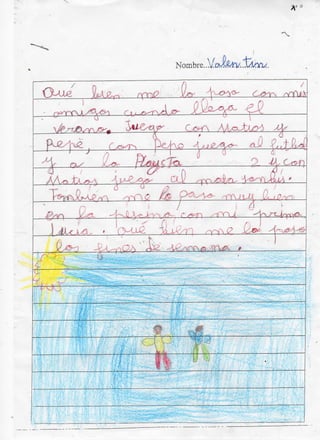 Nombre..Valentín
Qué bien me lo paso con mis
amigos cuando llega el
verano. Juego con Matios y
Pepe, con Pepe juego al futbol
y a la PlaysTa 2 y con
Matios juego al mata
También me lo paso muy bien
en la pescina con mi prima
Lucia. Qué bien me lo paso
los fines de semana.